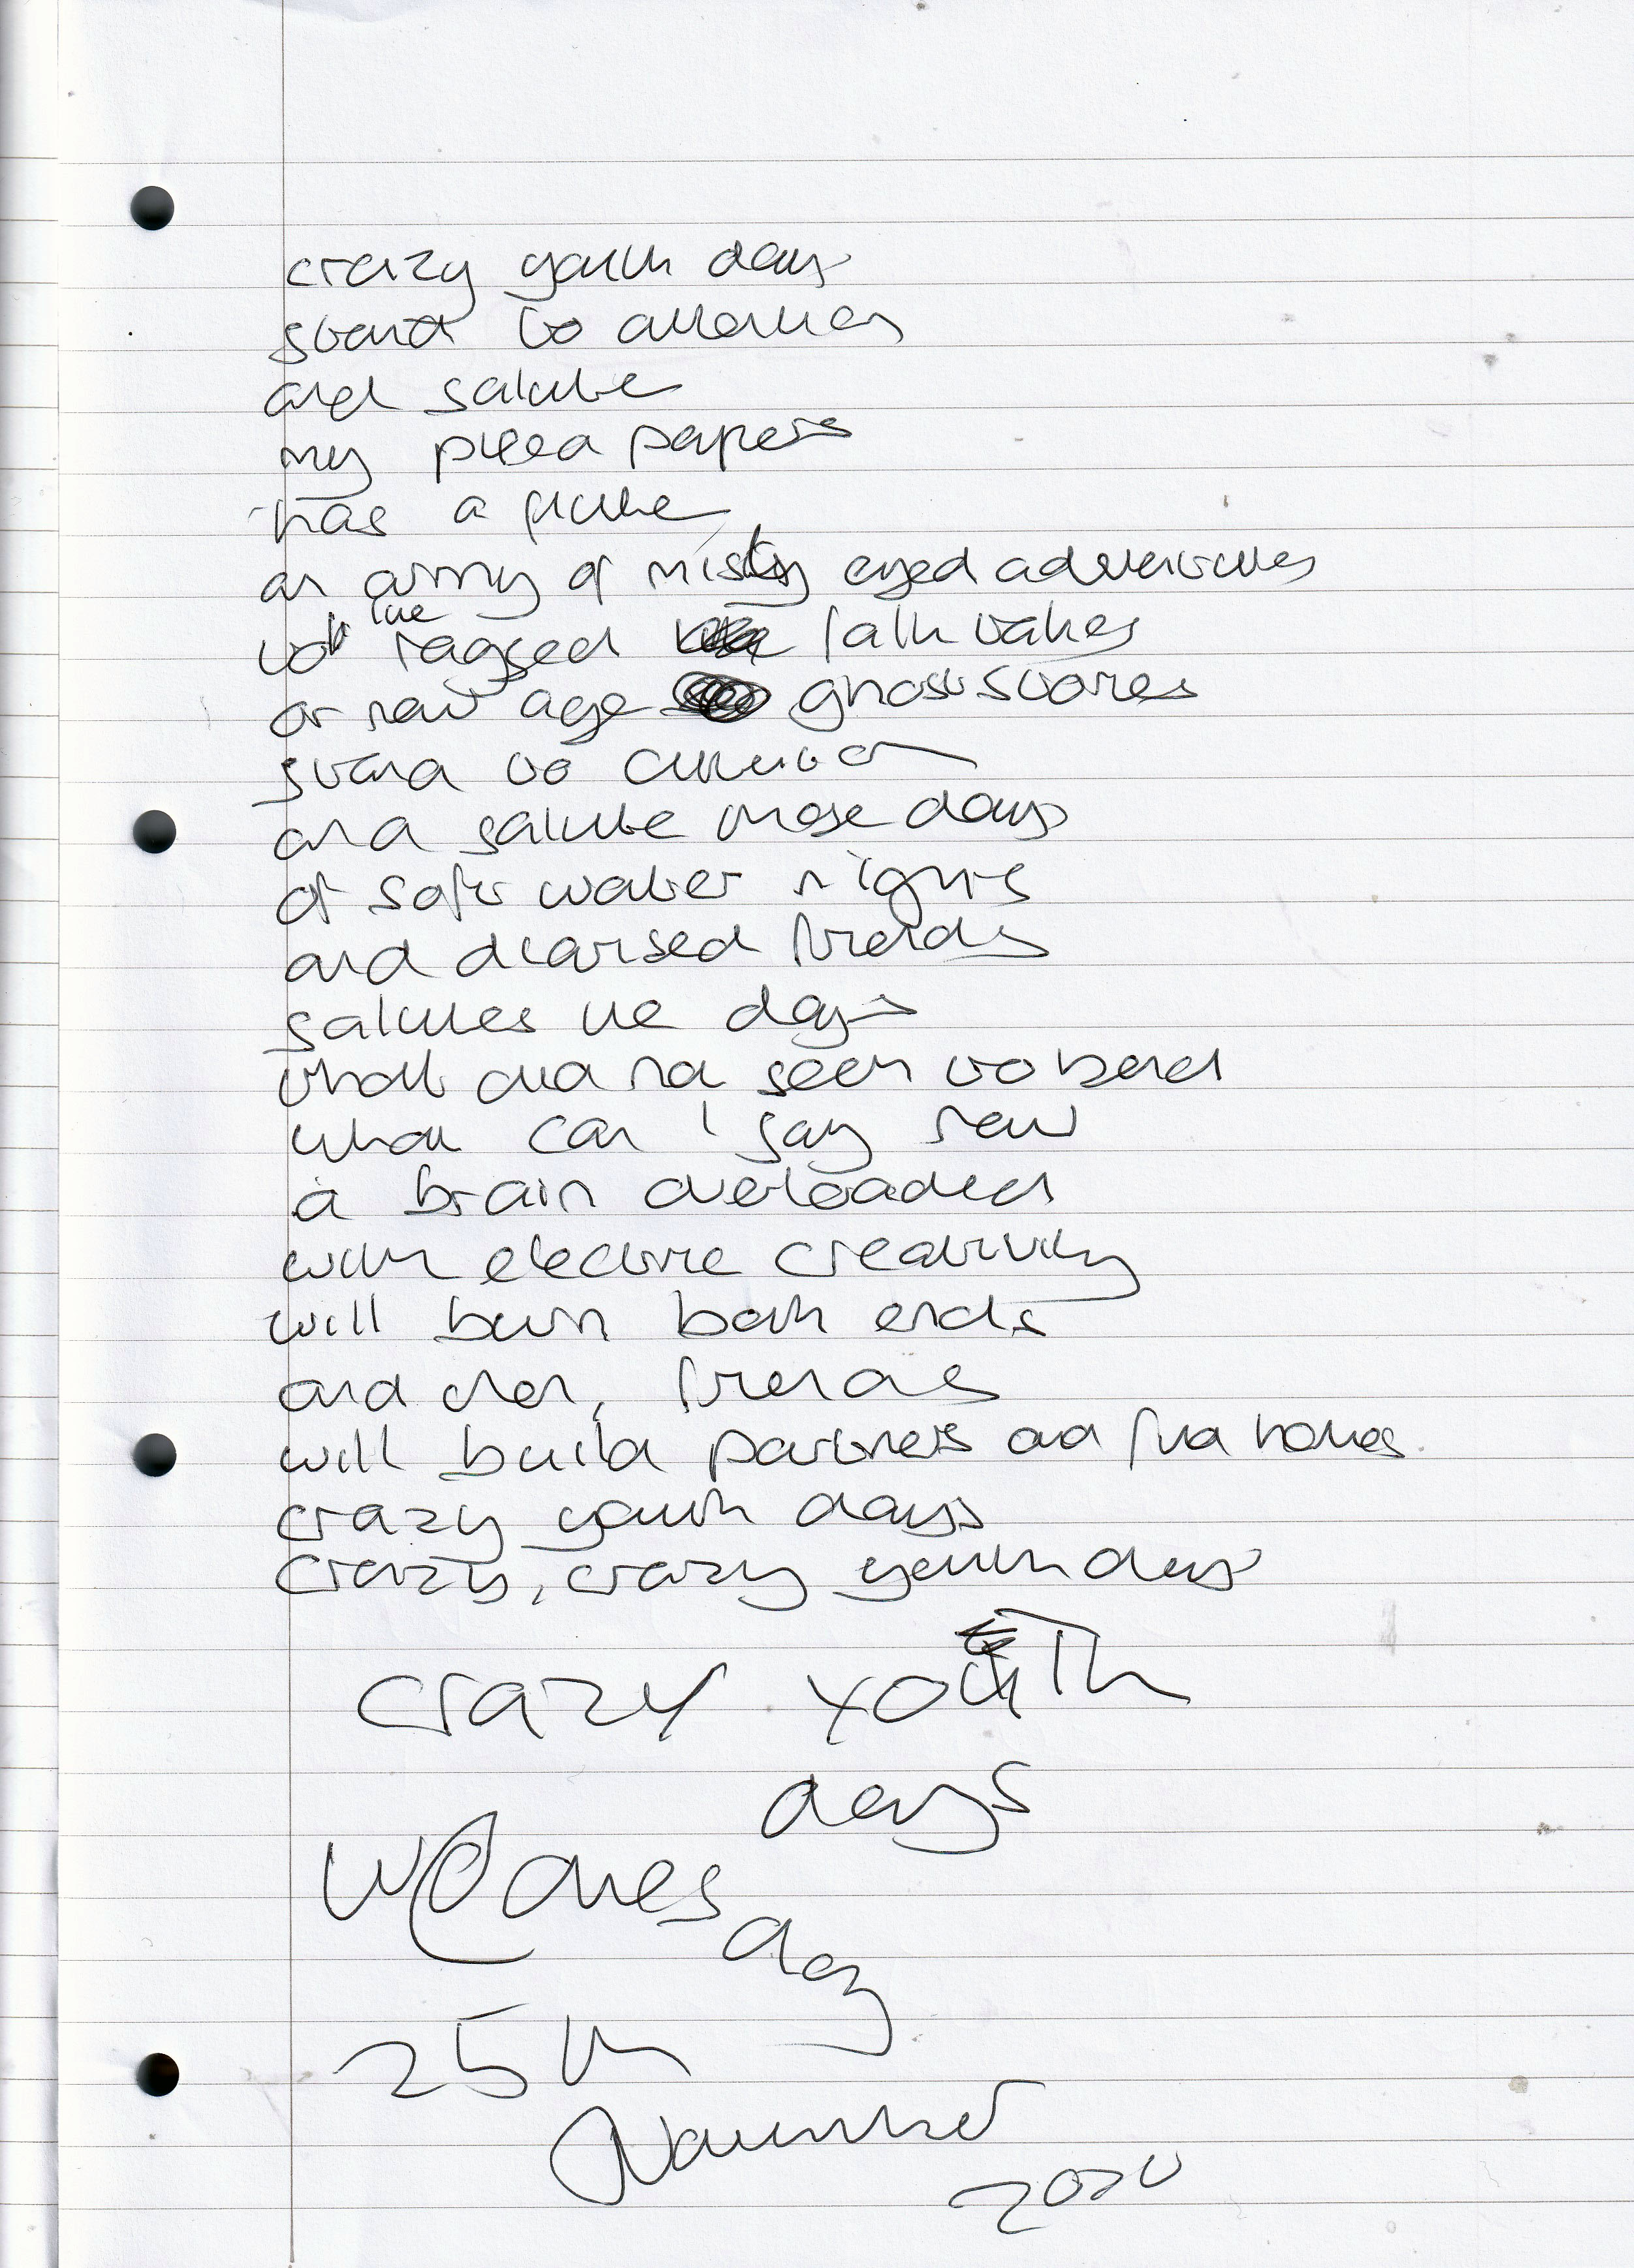 crazy youth days
stand to attention
and salute
my papers
has a flute
an army of misty eyed adventures
not the ragged folk takes
or new age ghost stories
stand to attention
and salute those days
of salt water nights
and diarised friends
salutes the days
that did not seem to bend
what can I say now
a brain overloaded
with electric creativity
will burn both ends
and then, friends
will build partners and find homes.
crazy youth days
crazy, crazy youth days
crazy youth
days
Wednesday
25th
November
2020